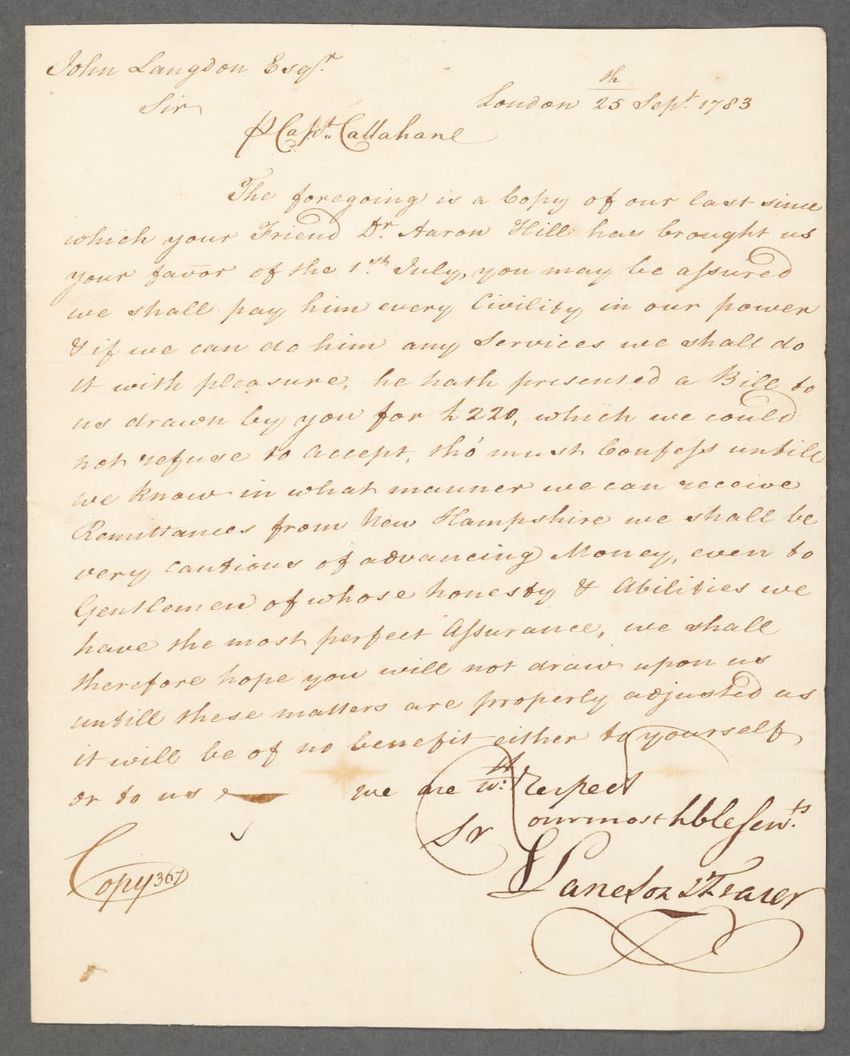 John Langdon Esqr.
th
London 25 Sept. 1783
Sir
P Capt. Callahane
The foregoing is a Copy of our last since
which your Friend Dr. Aaron Hill has brought us
your favor of the 1st. July, you may be assured
we shall pay him every Civility in our power
& if we can do him any Services we shall do
it with pleasure, he hath presented a Bill to
us drawn by you for £220, which we could
not refuse to accept, tho' must Confess untill
we know in what manner we can receive
Remittances from New Hampshire we shall be
very cautious of advancing Money, even to
Gentlemen of whose honesty & Abilities we
have the most perfect Assurance, we shall
therefore hope you will not draw upon us
untill these matters are properly adjusted as
it will be of no benefit either to yourself
or to us we are wth. Respect
Sr
our most hble Servts.
Lane Son & Fraser
Copy 367